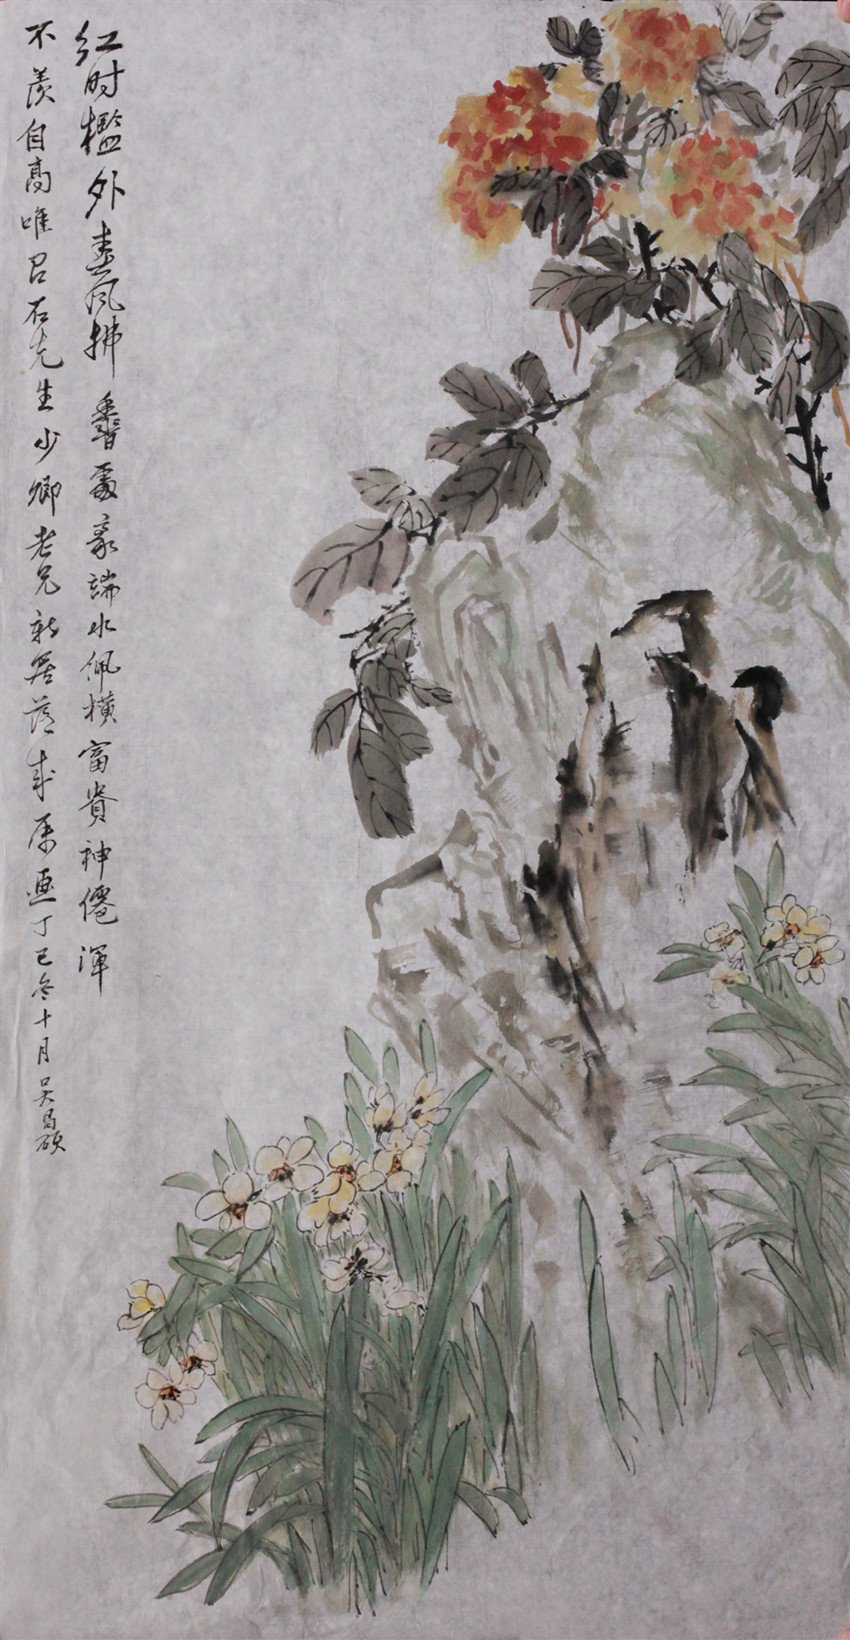 红时槛外春风拂香处豪端水佩横富贵神僊浑
不羡自高唯吕石先生少卿老兄新居落成属画丁巳冬十月吴昌硕